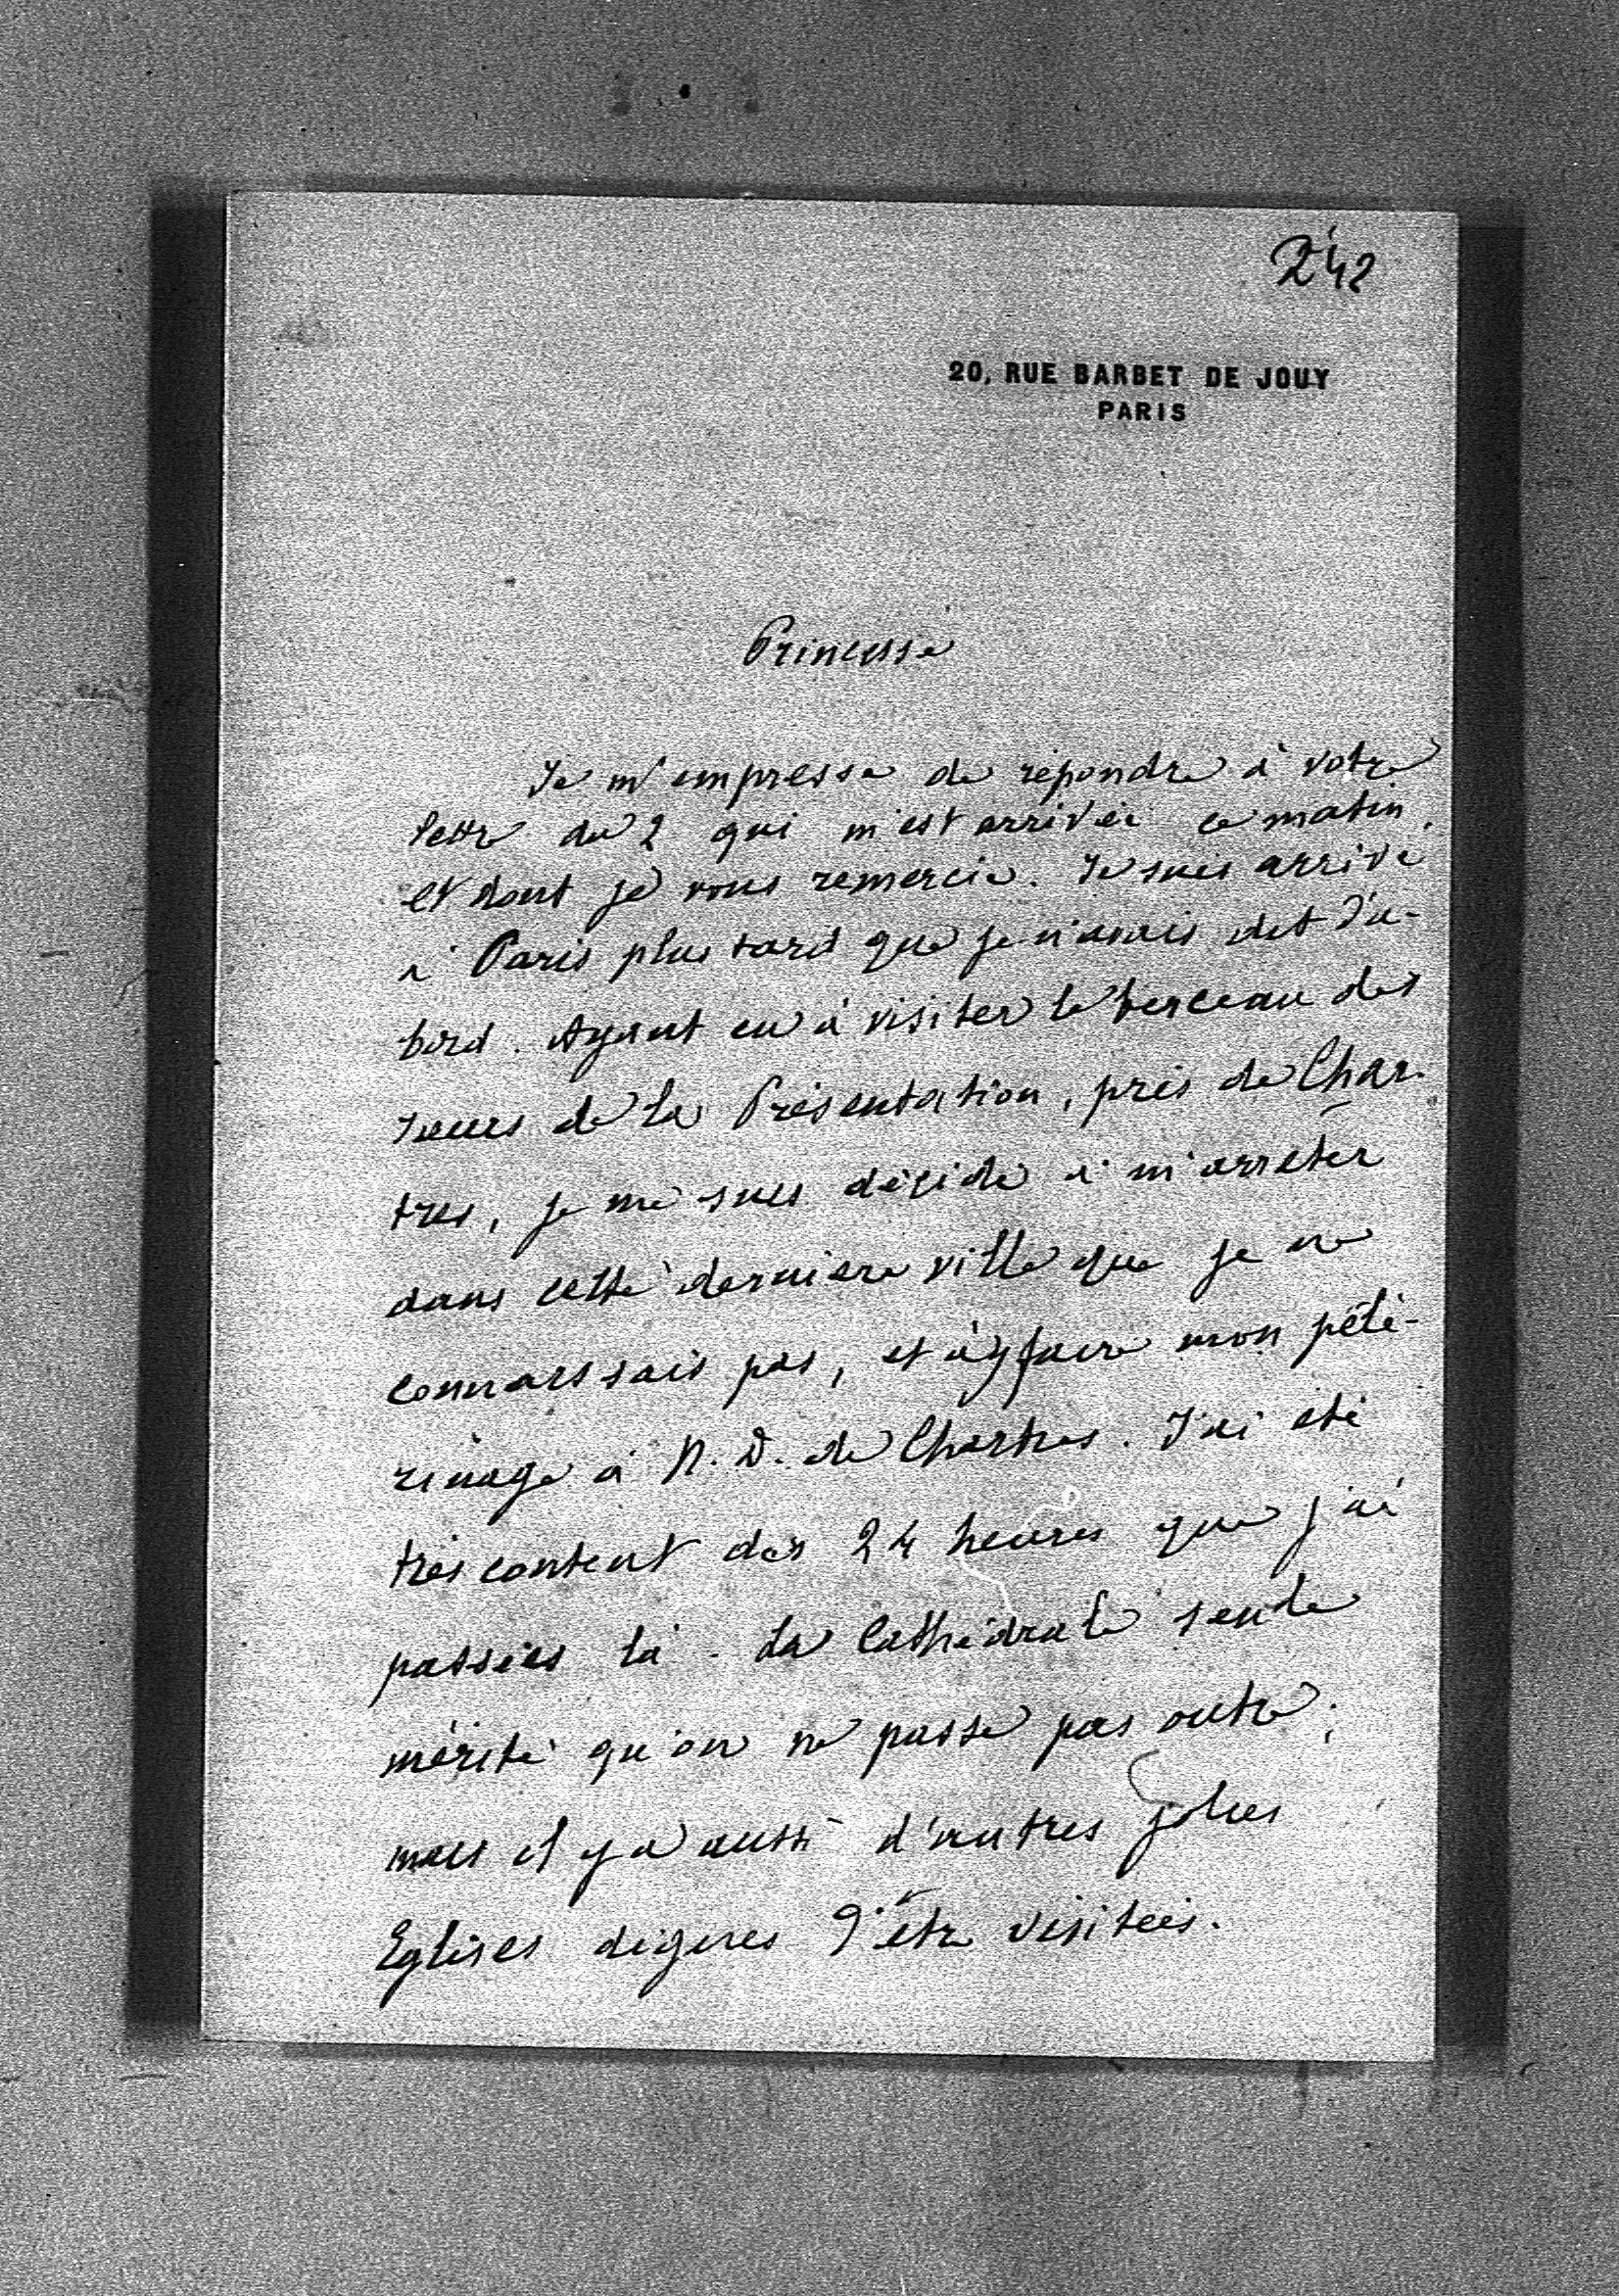 242
20, RUE BARBET DE JOUY
PARIS
Princesse
Je m'empresse de répondre à votre
lettre du 2 qui m'est arrivée ce matin,
et dont je vous remercie. Je suis arrivé
à Paris plus tard que je n'avais dit d'a-
bord. Ayant eu à visiter le berceau des
sœurs de la Présentation, près de Char-
tres, je me suis décidé à m'arrêter
dans cette dernière ville que je ne
connaissais pas, et à y faire mon péle-
rinage à N. D. de Chartres. J'ai été
très content des 24 heures que j'ai
passées là. La Cathédrale seule
mérite qu'on ne passe pas outre;
mais il y a aussi d'autres jolies
Eglises dignes d'être visitées.